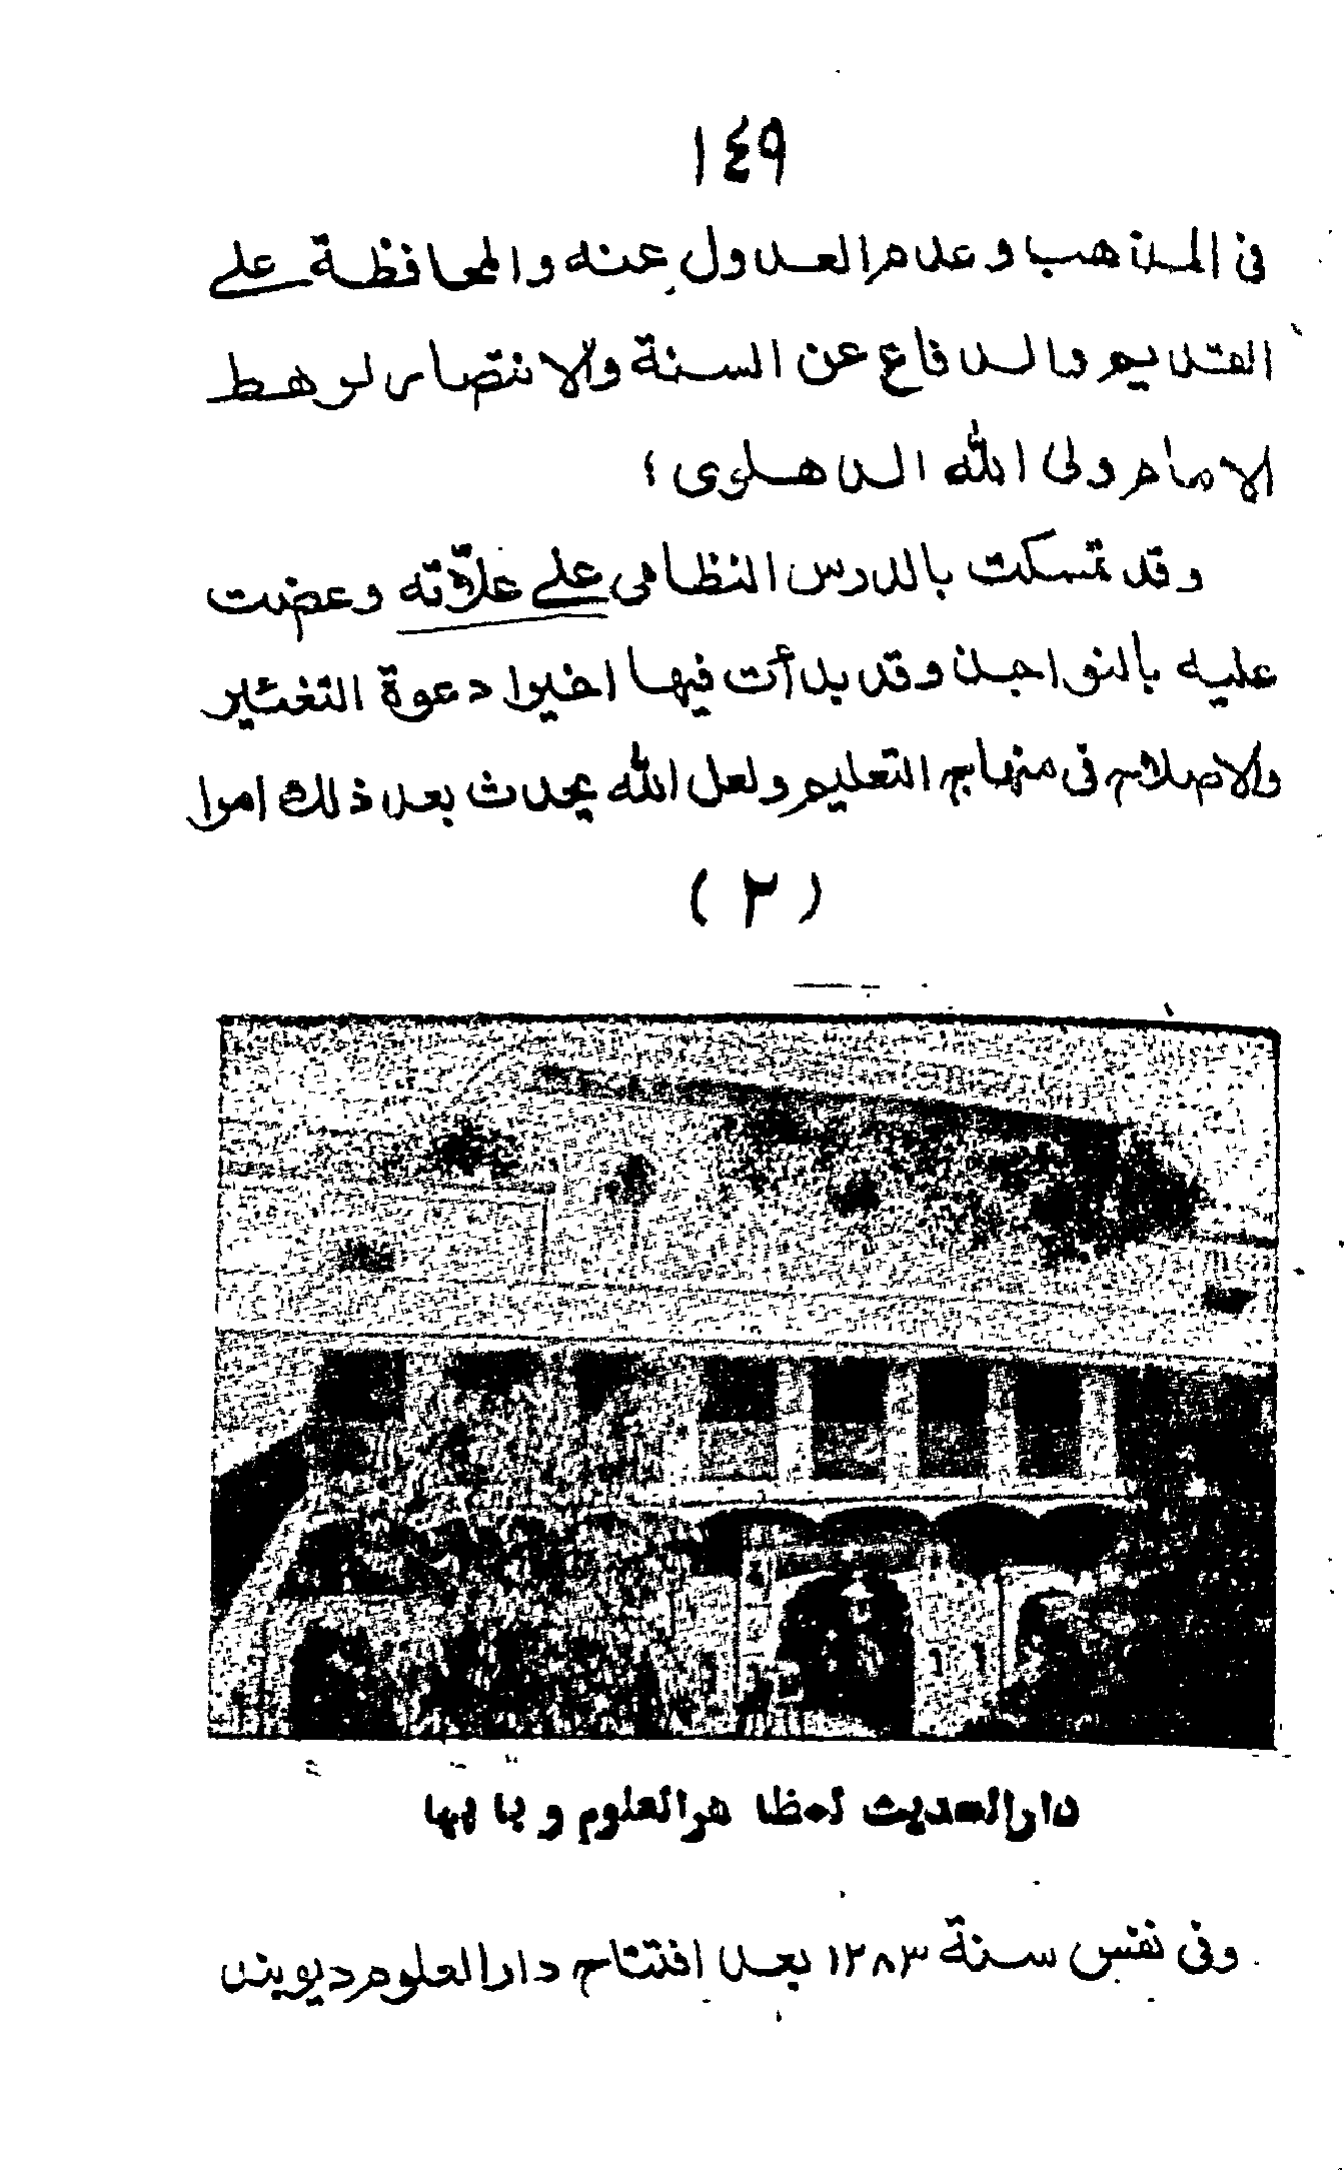 ١٤٩
فى المذهب وعدم العدول عنه والمحافظة على
القديم والدفاع عن السنة والانتصار لرهط
الامام ولى الله الدهلوى ؛
وقد تمسكت بالدرس النظامى على علاّته وعضت
عليه بالنواجذ وقد بدأت فيها اخيرا دعوة التغئير
والاصلاح فى منهاج التعليم ولعل الله يحدث بعد ذلك امرا
( ٢ )
دارالحديث لمظاهرالعلوم وبابها
وفى نفس سنة ١٢٨٣ بعد افتتاح دارالعلوم ديوبند